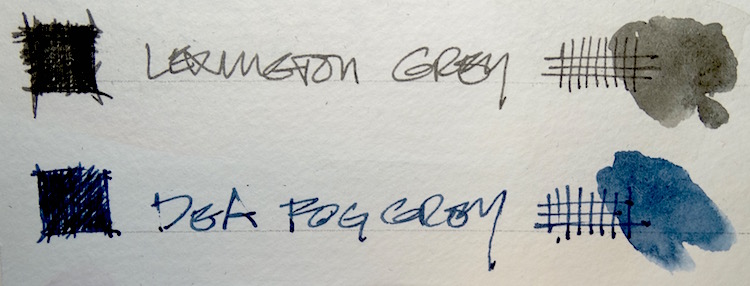 LEXINGTON GREY
DE A FOG GREY